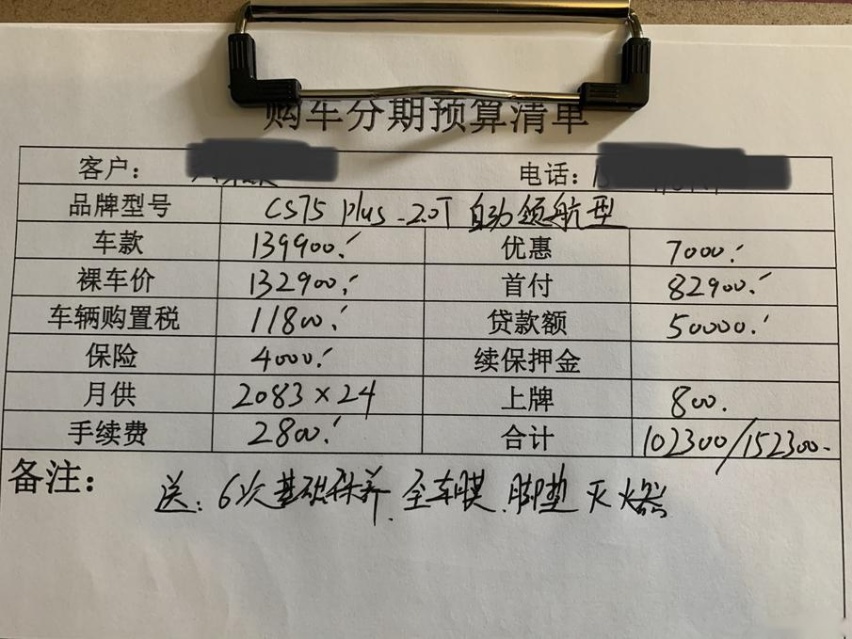 购车分期预算清单
客户： 电话：
品牌型号 CS75 Plus-2.0T 自动领航型
车款 139900. 优惠 7000.
裸车价 132900. 首付 82900.
车辆购置税 11800. 贷款额 50000.
保险 4000. 续保押金
月供 2083×24 上牌 800.
手续费 2800. 合计 102300/152300.
备注： 送：6次基础保养、全车膜、脚垫 灭火器